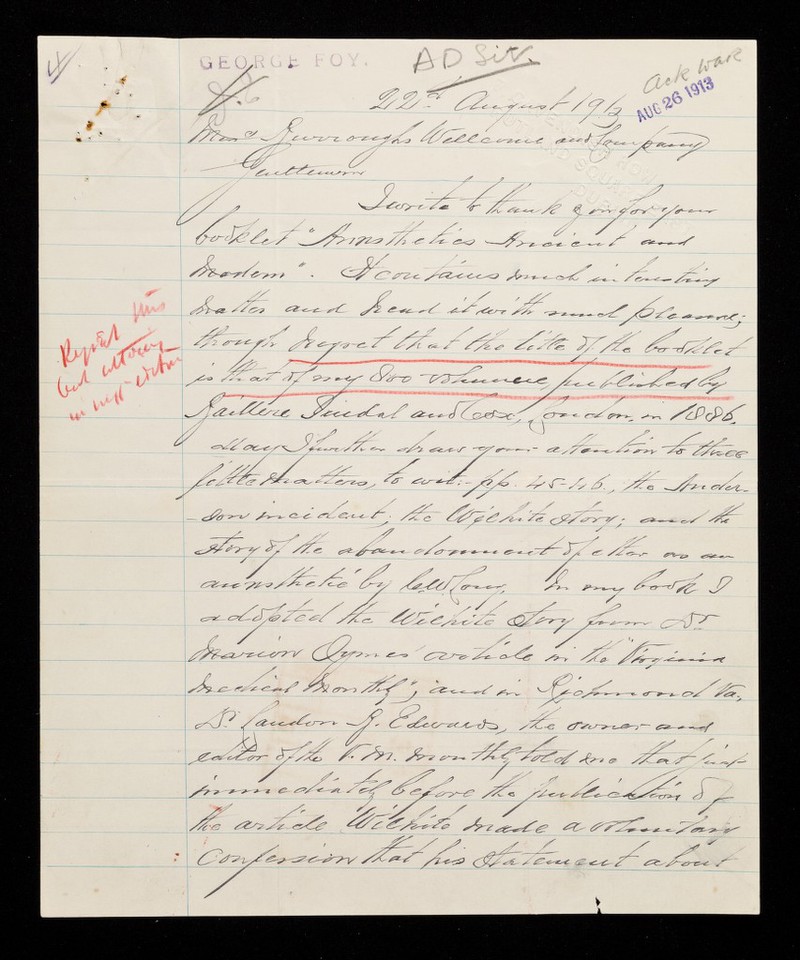 GEORGE FOY.
AD Sir.
Ack
AUG 26 1913
22nd August 1913
Messrs Burroughs Wellcome and Company
Gentlemen
I write to thank you for your
booklet "Anæsthetics Ancient and
Modern". It contains much interesting
matter and I read it with much pleasure;
though I regret that the title of the booklet
is that of my 8vo volume, published by
Bailliere Tindal and Cox, London, in 1886.
May I further draw your attention to three
little matters, to wit:- pp. 45-46, the Ander-
-son incident; the Wilhite story; and the
story of the abandonment of ether as an
anæsthetic by Long. In my book I
adopted the Wilhite story from Dr
Marion Symes' article in the "Virginia
Medical Monthly"; and in Richmond Va.
Dr Landon G. Edwards, the owner and
editor of the V. M. Monthly told me that just
immediately before the publication of
the article Wilhite made a voluntary
confession that his statement about
Regret this
but
in next edition